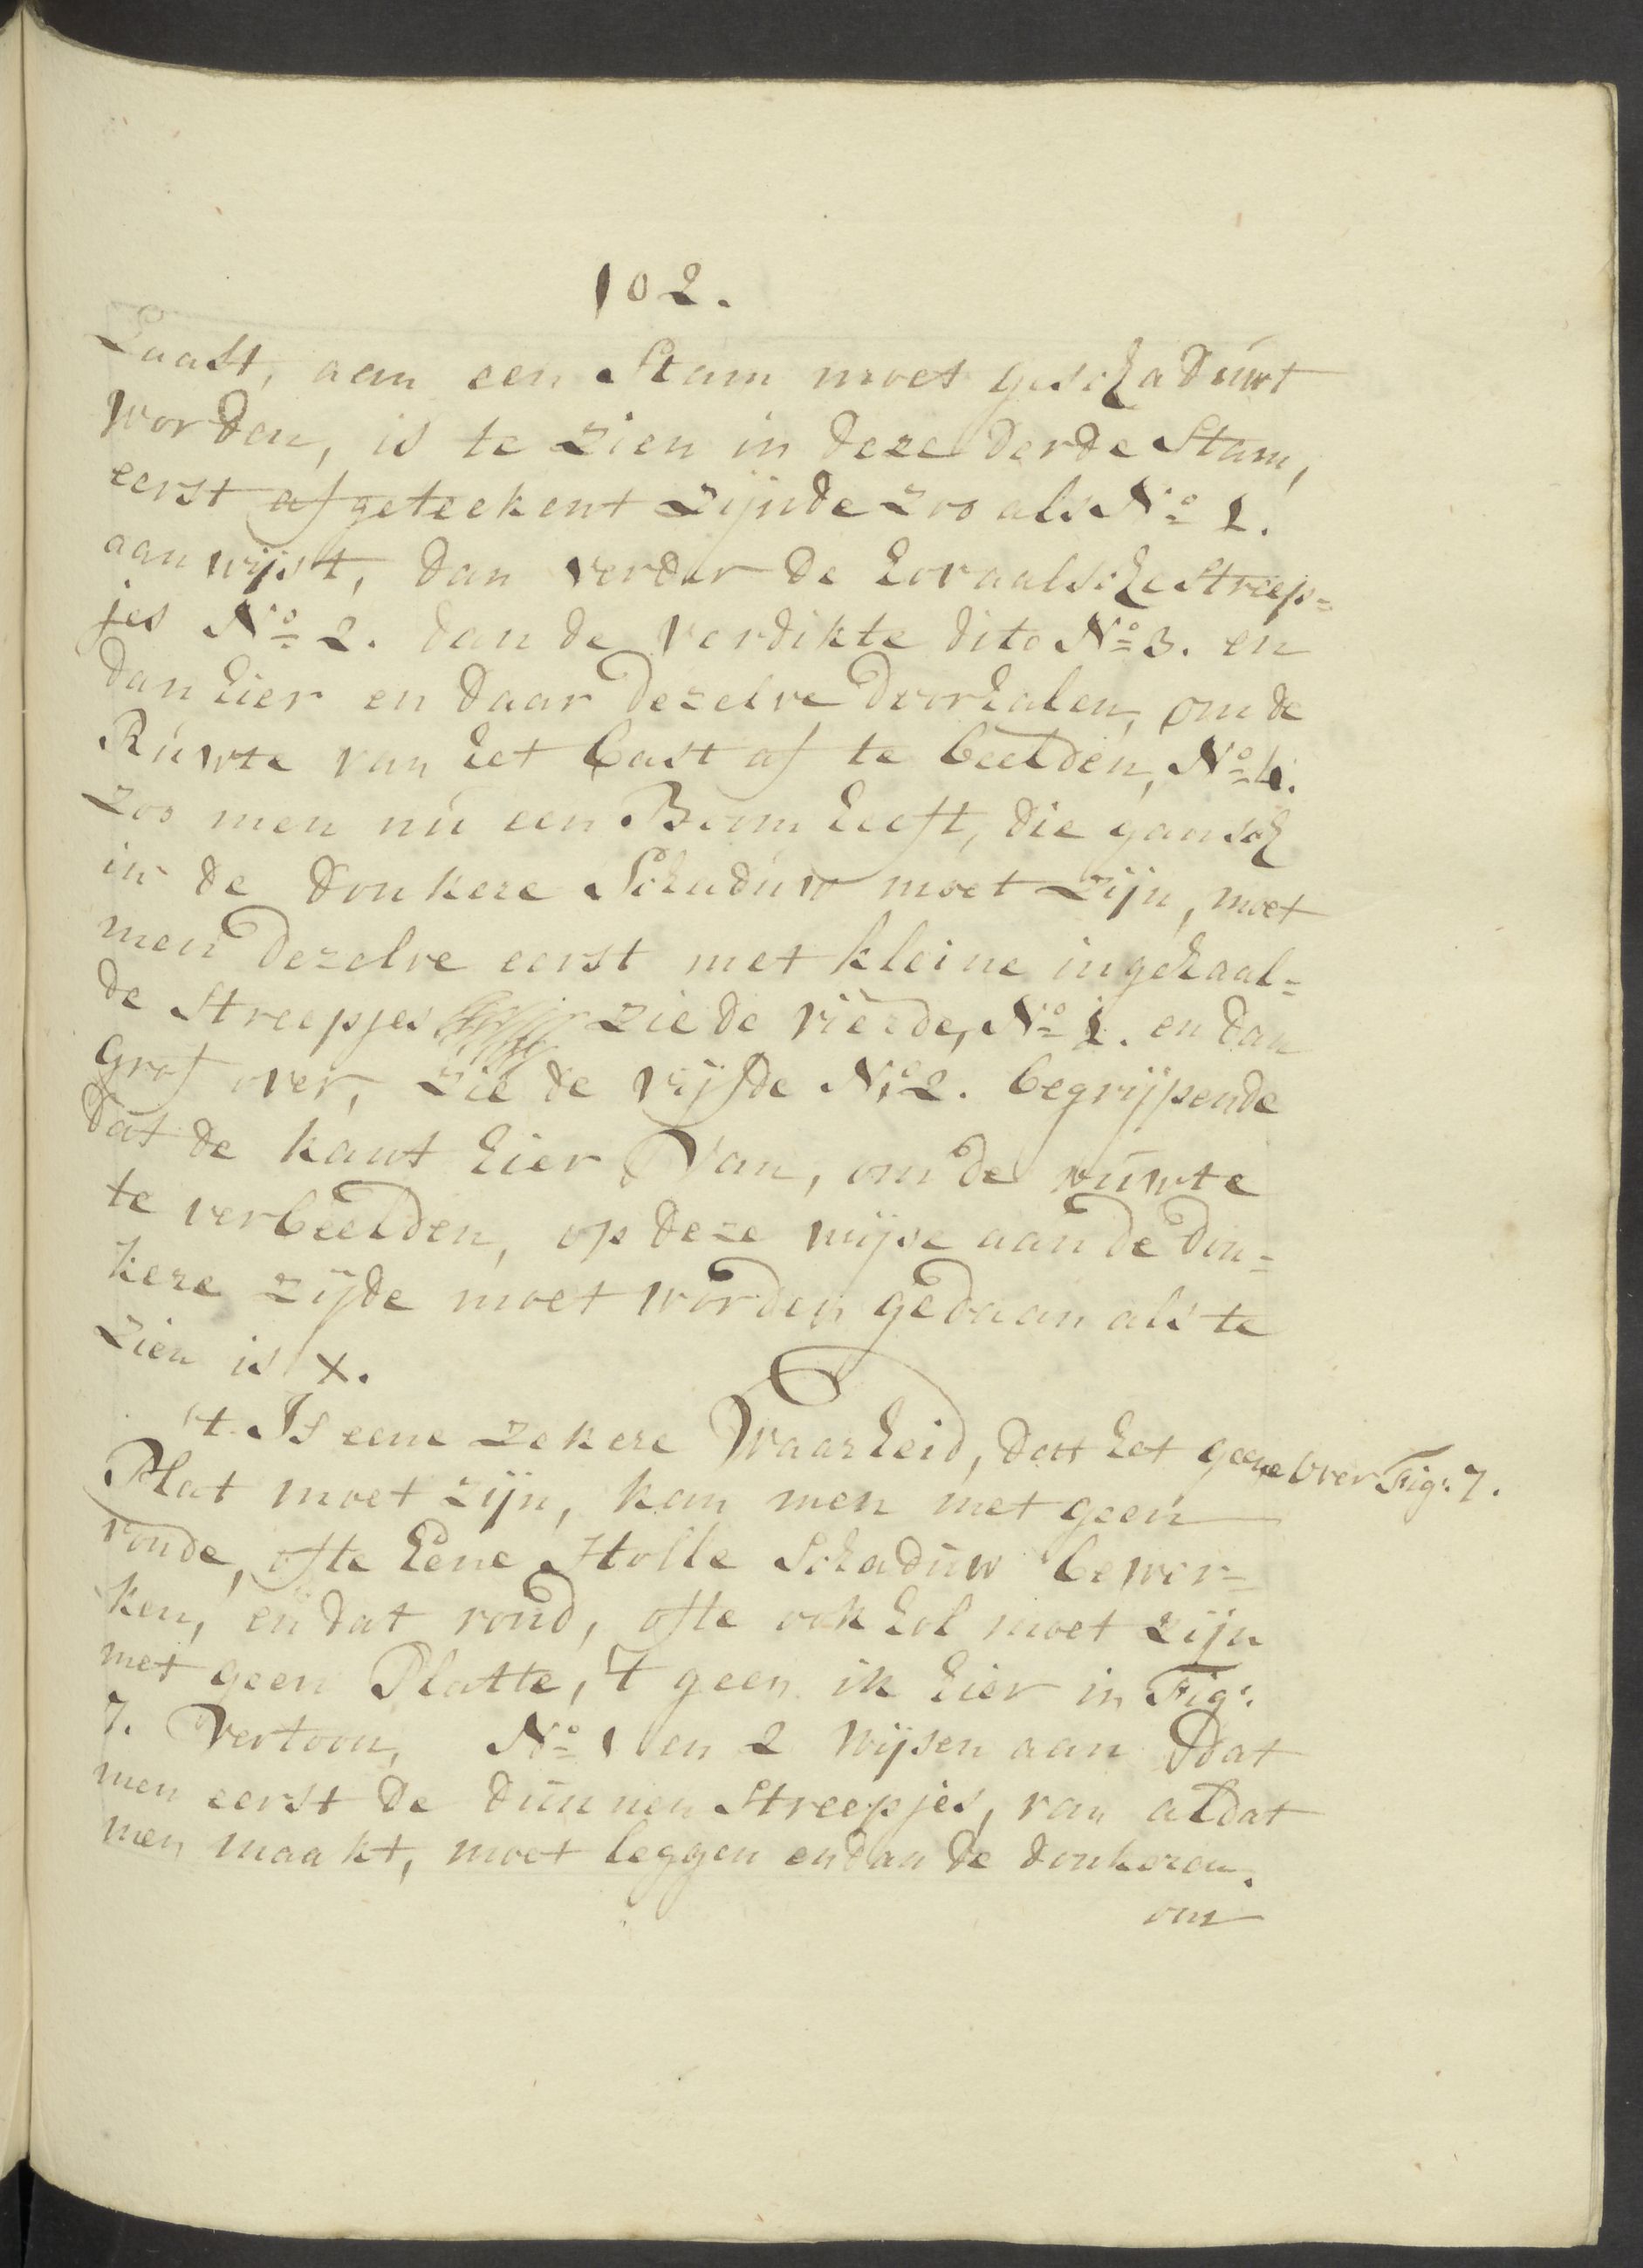 102.
Laast, aan een Stam moet geschaduwt
worden, is te zien in deze derde Stam,
eerst afgeteekent zijnde zoo als No 1.
aanwijst, dan verder de horaalsche Streep=
jes No 2. dan de verdikte dito No 3. en
dan hier en daar dezelve doorhalen, om de
Ruwte van het bast af te beelden, No 4.
zoo men nu een Boom heeft, die gansch
in de donkere Schaduw moet zijn, moet
men dezelve eerst met kleine ingehaal=
de Streepjes zie de vierde, No 1. en dan
Grof over, zie de vijfde No 2. begrijpende
dat de kant hier van, om de ruwte
te verbeelden, op deze wijse aan de don=
kere zijde moet worden gedaan als te
zien is x.
't Is eene zekere Waarheid, dat het geene
over Fig: 7.
Plat moet zijn, kan men met geen
ronde, ofte Eene Holle Schaduw bewer=
ken, en dat rond, ofte ook hol moet zijn
met geen Platte, 't geen ik hier in Fig:
7. Vertoon, No 1 en 2 wijsen aan dat
men eerst de dunnen Streepjes, van al dat
men maakt, moet leggen en dan de donkeren.
om